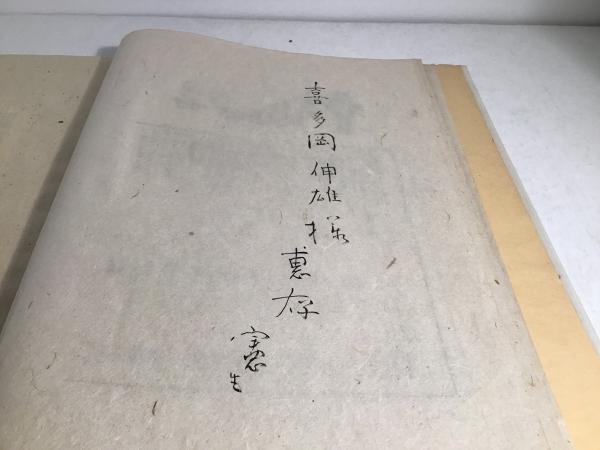 喜多岡伸雄様
恵存
憲生